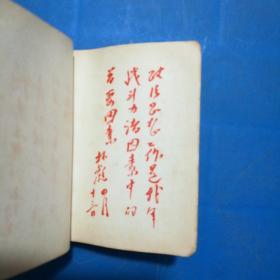 政治思想工作是我军
战斗力诸因素中的
首要因素
林彪
四月